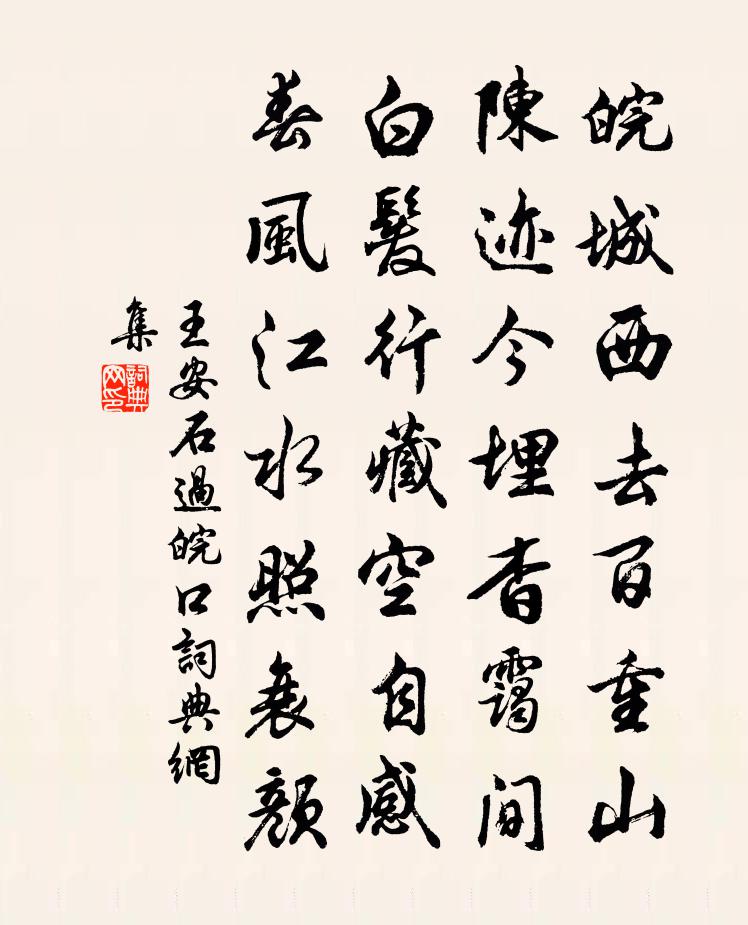 皖城西去百重山
陳迹今埋杳靄間
白髮行藏空自感
春風江水照衰顏
王安石過皖口詞典網
集
詞典網印